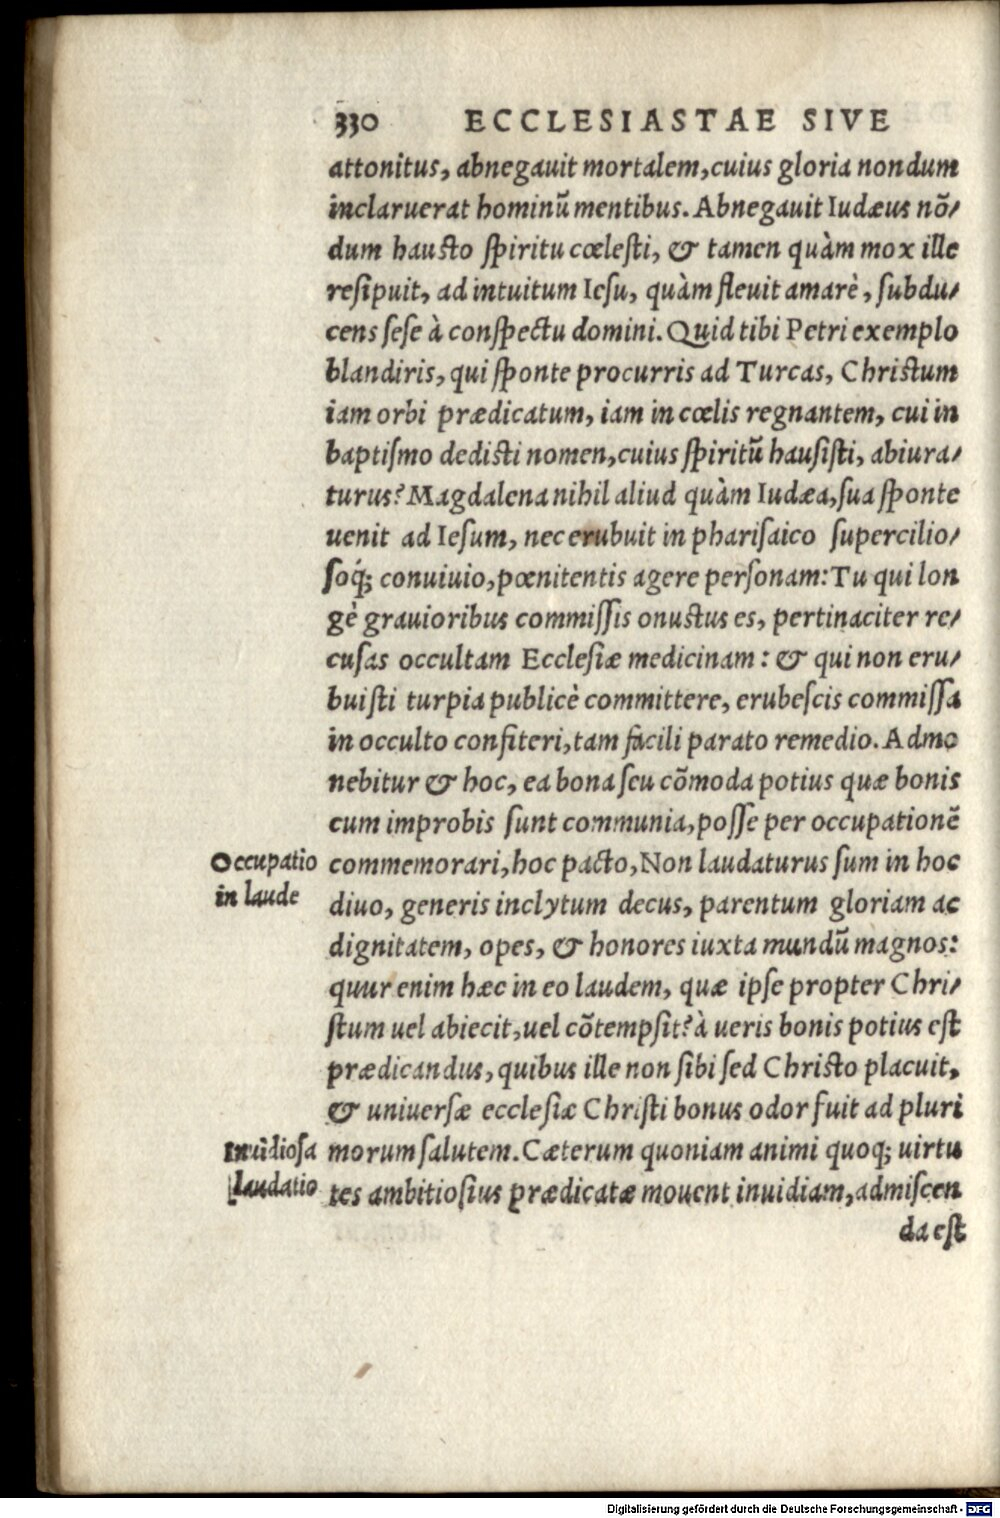 330 ECCLESIASTAE SIVE
attonitus, abnegauit mortalem, cuius gloria nondum
inclaruerat hominũ mentibus. Abnegauit Iudæus nõ/
dum hausto spiritu cœlesti, & tamen quàm mox ille
resipuit, ad intuitum Iesu, quàm fleuit amarè, subdu/
cens sese à conspectu domini. Quid tibi Petri exemplo
blandiris, qui sponte procurris ad Turcas, Christum
iam orbi prædicatum, iam in cœlis regnantem, cui in
baptismo dedisti nomen, cuius spiritũ hausisti, abiura/
turus? Magdalena nihil aliud quàm Iudæa, sua sponte
uenit ad Iesum, nec erubuit in pharisaico supercilio/
soq́; conuiuio, pœnitentis agere personam: Tu qui lon
gè grauioribus commissis onustus es, pertinaciter re/
cusas occultam Ecclesiæ medicinam: & qui non eru/
buisti turpia publicè committere, erubescis commissa
in occulto confiteri, tam facili parato remedio. Admo
nebitur & hoc, ea bona seu cõmoda potius quæ bonis
cum improbis sunt communia, posse per occupationẽ
Occupatio commemorari, hoc pacto, Non laudaturus sum in hoc
in laude diuo, generis inclytum decus, parentum gloriam ac
dignitatem, opes, & honores iuxta mundũ magnos:
quur enim hæc in eo laudem, quæ ipse propter Chri/
stum uel abiecit, uel cõtempsit? à ueris bonis potius est
prædicandus, quibus ille non sibi sed Christo placuit,
& uniuersæ ecclesiæ Christi bonus odor fuit ad pluri
Inuidiosa morum salutem. Cæterum quoniam animi quoq; uirtu
laudatio tes ambitiosius prædicatæ mouent inuidiam, admiscen
da est
Digitalisierung gefördert durch die Deutsche Forschungsgemeinschaft - DFG